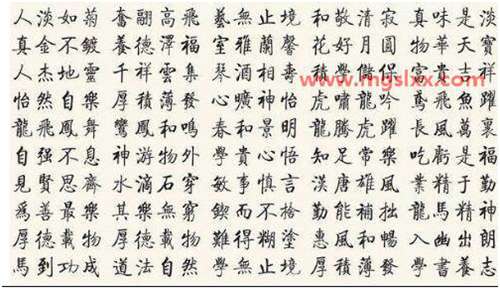 人淡如菊 奮翮高飛 藝無止境 和敬清寂 真味是淡
真金不鍍 養德澤福 室雅蘭馨 花好月圓 物華天寶
人杰地靈 千祥雲集 琴酒相 積學儲 富貴吉祥
怡然自樂 厚積薄發 心曠神怡 虎嘯龍吟 鳶飛魚躍
龍飛鳳舞 鸞鳳和鳴 春和景明 龍騰虎躍 長風萬裏
自强不息 神游物外 學貴心悟 知足常樂 吃虧是福
見賢思齊 水滴石穿 敏事慎言 漢唐雄風 業精于勤
爲善最樂 其樂無窮 鍥而不捨 勤能補拙 龍馬精神
厚德載物 厚德載物 難得糊塗 惠風和暢 入幽出朗
馬到功成 道法自然 學無止境 厚積薄發 學書養志
www.mgslxx.com